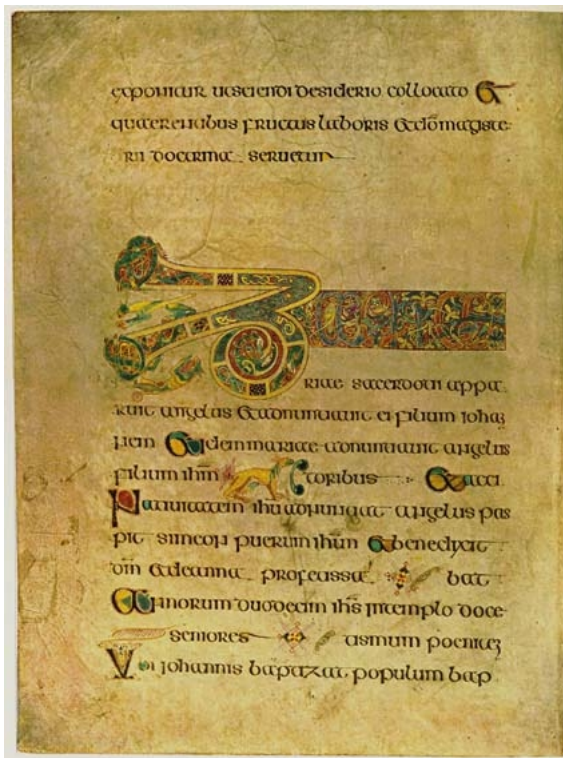 exponitur ut sciendi desiderio collocato &
quaerentibus fructus laboris & magiste
rii doctrina seruetur
Zacha
riae sacerdoti appa
ruit angelus & adnuntiauit ei filium iohan
nem & idem mariae adnuntiauit angelus
filium ihm toribus & acci
Natiuitatem ihu adnuntiat angelus pas
pit simeon puerum ihm & benedixit
dm & de anna profetissa bat
& annorum duodecim ihs in templo doce
seniores tismum poenitez
Ubi iohannis baptizat populum bap